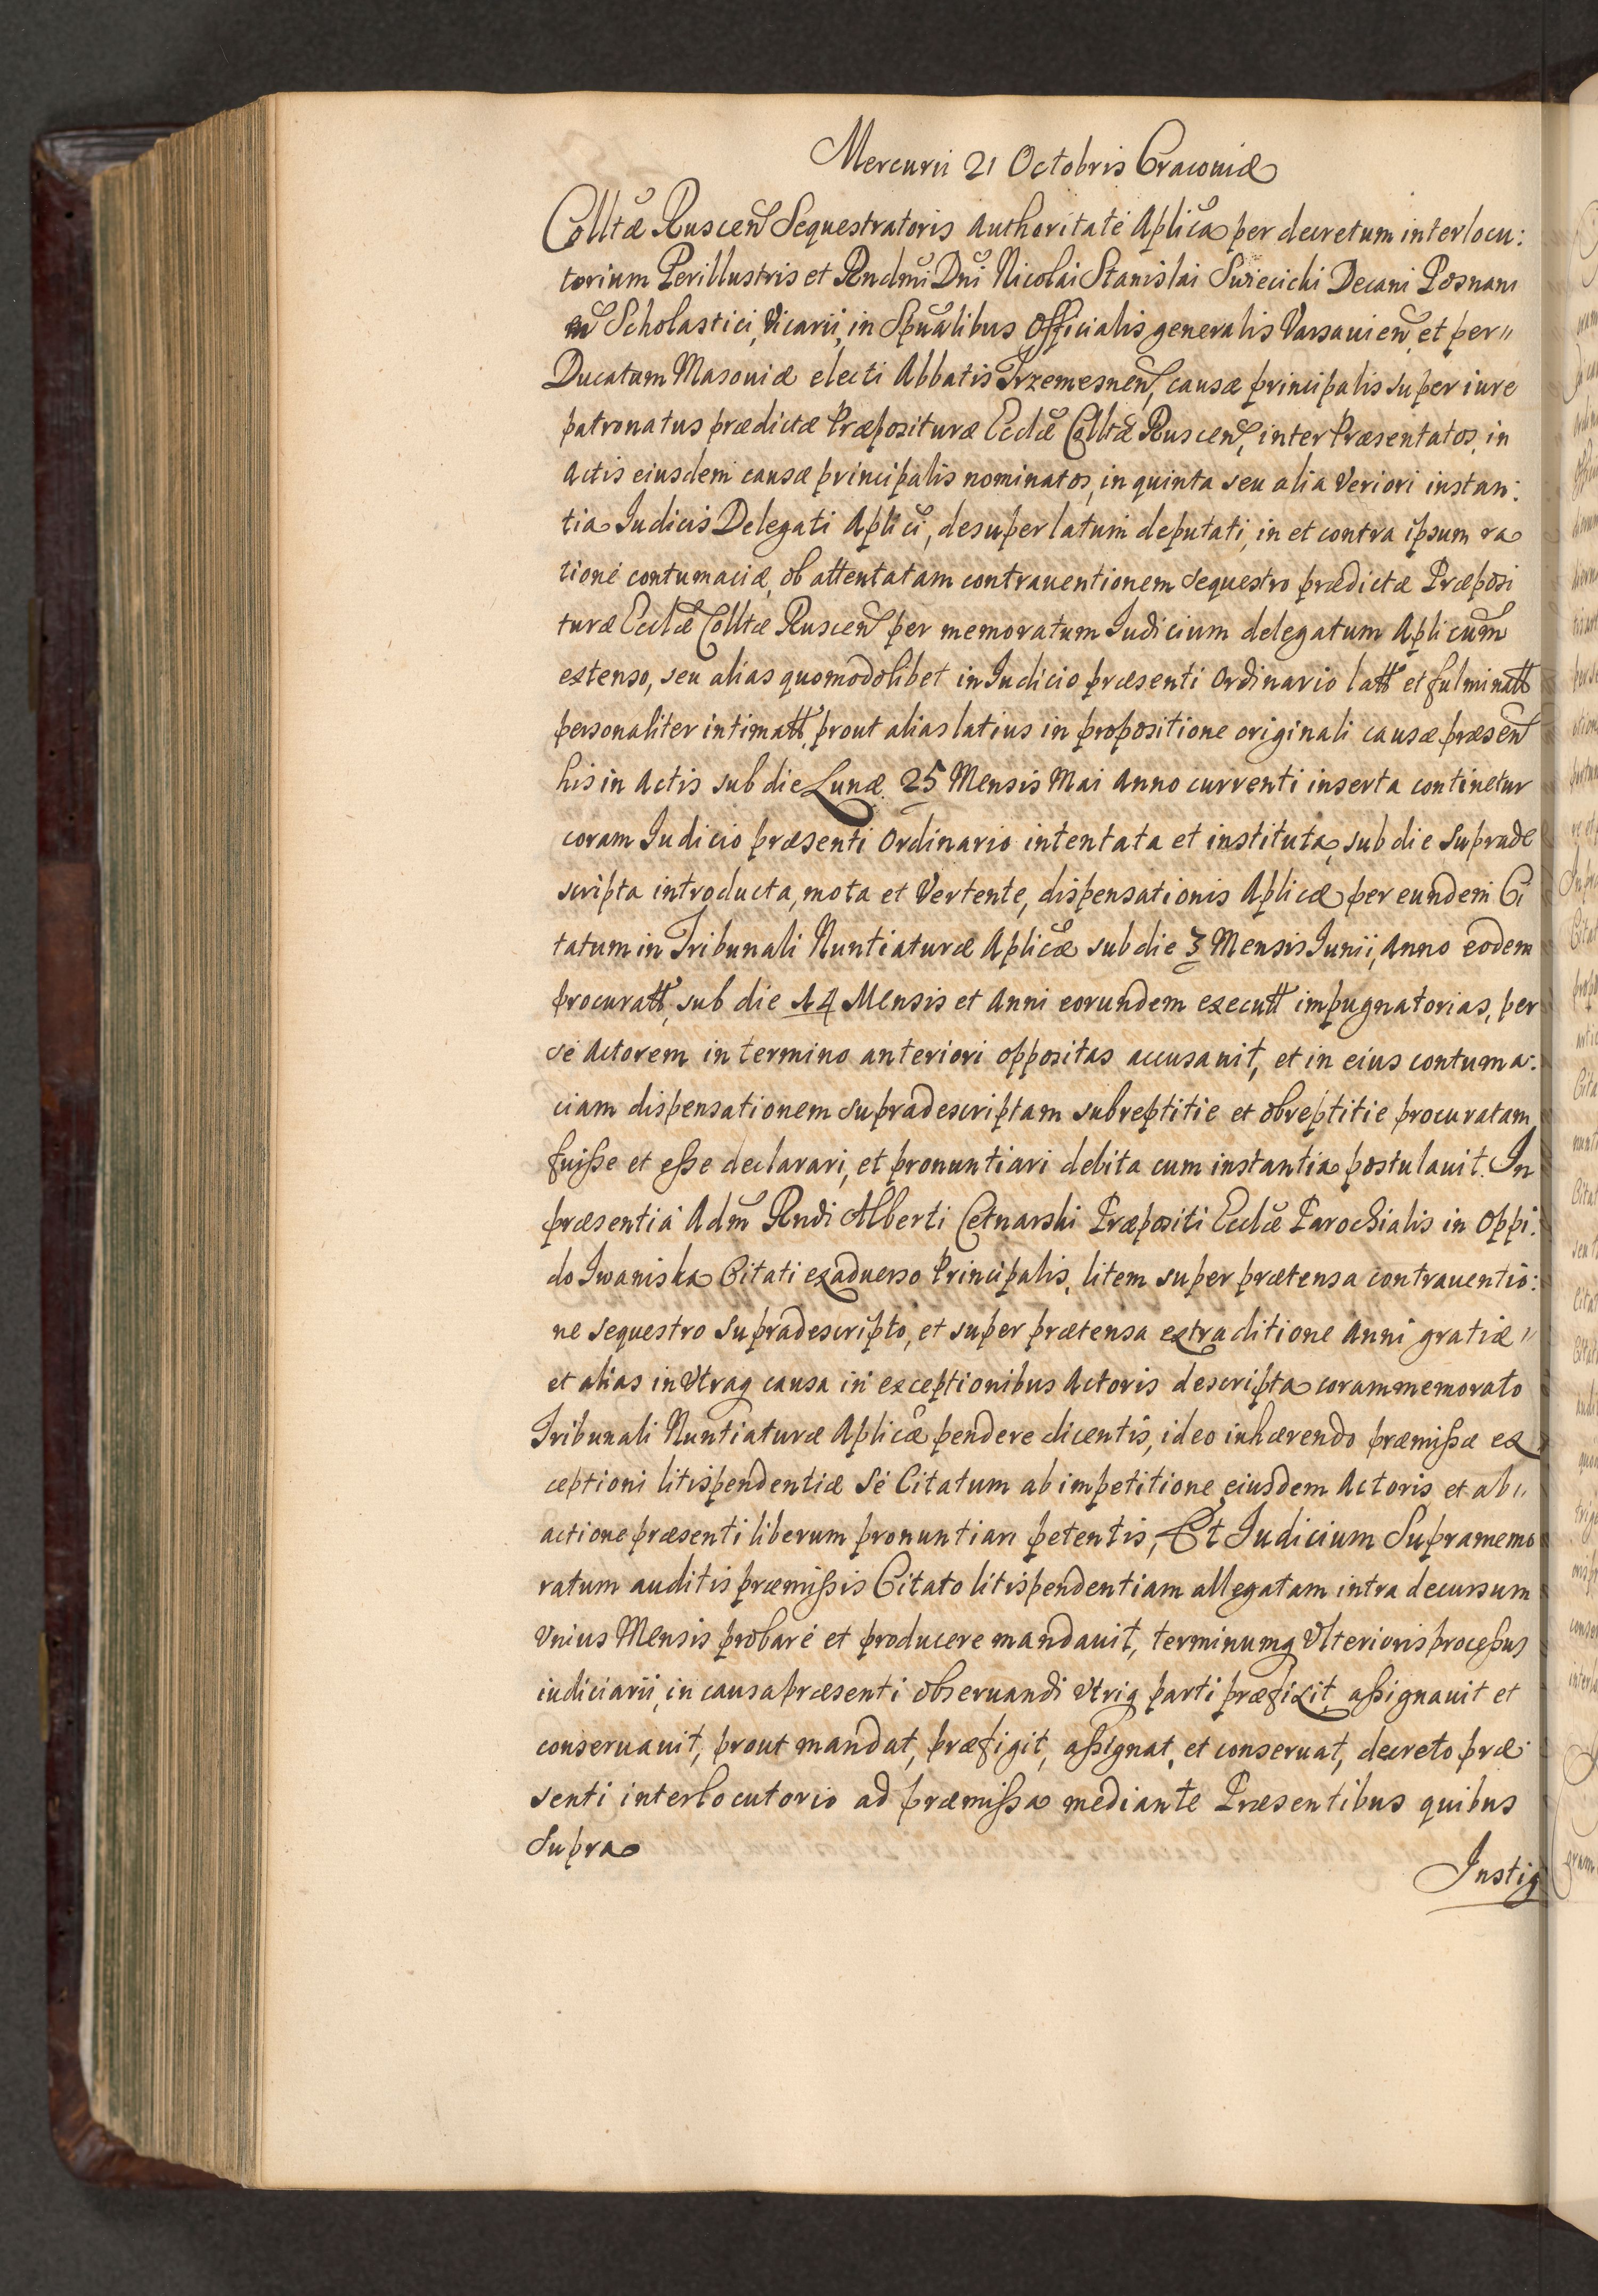 Mercurii 21 Octobris Cracouiæ
Colltæ Ruscen Sequestratoris Authoritate Aplica per decretum interlocu:
torium Perillustris et Rndmi Dni Nicolai Stanislai Swiecicki Decani Posnani
en Scholastici, Vicarii, in Spualibus Officialis generalis Varsauien, et per"
Ducatum Masouiæ electi Abbatis Trzemesnen, causæ principalis super iure
patronatus prædictæ Præposituræ Ecclæ Colltæ Ruscen, inter Præsentatos, in
Actis eiusdem causæ principalis nominatos, in quinta seu alia Veriori instan:
tia Iudicis Delegati Aplici, desuper latum deputati, in et contra ipsum ra
tione contumaciæ, ob attentatam contrauentionem sequestro prædictæ Præposi
turæ Ecclæ Colltæ Ruscen per memoratum Iudicium delegatum Aplicum
extenso, seu alias quomodolibet in Iudicio præsenti Ordinario latt et fulminatt
personaliter intimatt, prout alias latius in propositione originali causæ præsen
his in Actis sub die Lunæ 25 Mensis Mai Anno currenti inserta continetur
coram Iudicio præsenti Ordinario intentata et instituta, sub die suprade
scripta introducta, mota et Vertente, dispensationis Aplicæ per eundem Ci
tatum in Tribunali Nuntiaturæ Aplicæ sub die 3 Mensis Iunii, Anno eodem
procuratt, sub die 14 Mensis et Anni eorundem executt impugnatorias, per
se Actorem in termino anteriori oppositas accusauit, et in eius contuma:
ciam dispensationem supradescriptam subreptitie et obreptitie procuratam
fuisse et esse declarari, et pronuntiari debita cum instantia postulauit. In
præsentia Adm Rndi Alberti Cetnarski Præpositi Ecclæ Parochialis in Oppi:
do Iwaniska Citati ex aduerso Principalis, litem super prætensa contrauentio:
ne sequestro supradescripto, et super prætensa extraditione Anni gratiæ"
et alias in Vtraq causa in exceptionibus Actoris descripta coram memorato
Tribunali Nuntiaturæ Aplicæ pendere dicentis, ideo inhærendo præmissæ ex
ceptioni litispendentiæ se Citatum ab impetitione eiusdem Actoris et ab"
actione præsenti liberum pronuntiari petentis, Et Iudicium Supramemo
ratum auditis præmissis Citato litispendentiam allegatam intra decursum
Vnius Mensis probare et producere mandauit, terminumq Vlterioris processus
iudiciarii, in causa præsenti obseruandi Vtriq parti præfixit, assignauit et
conseruauit, prout mandat, præfigit, assignat, et conseruat, decreto præ
senti interlocutorio ad præmissa mediante Præsentibus quibus
Supra
Instig